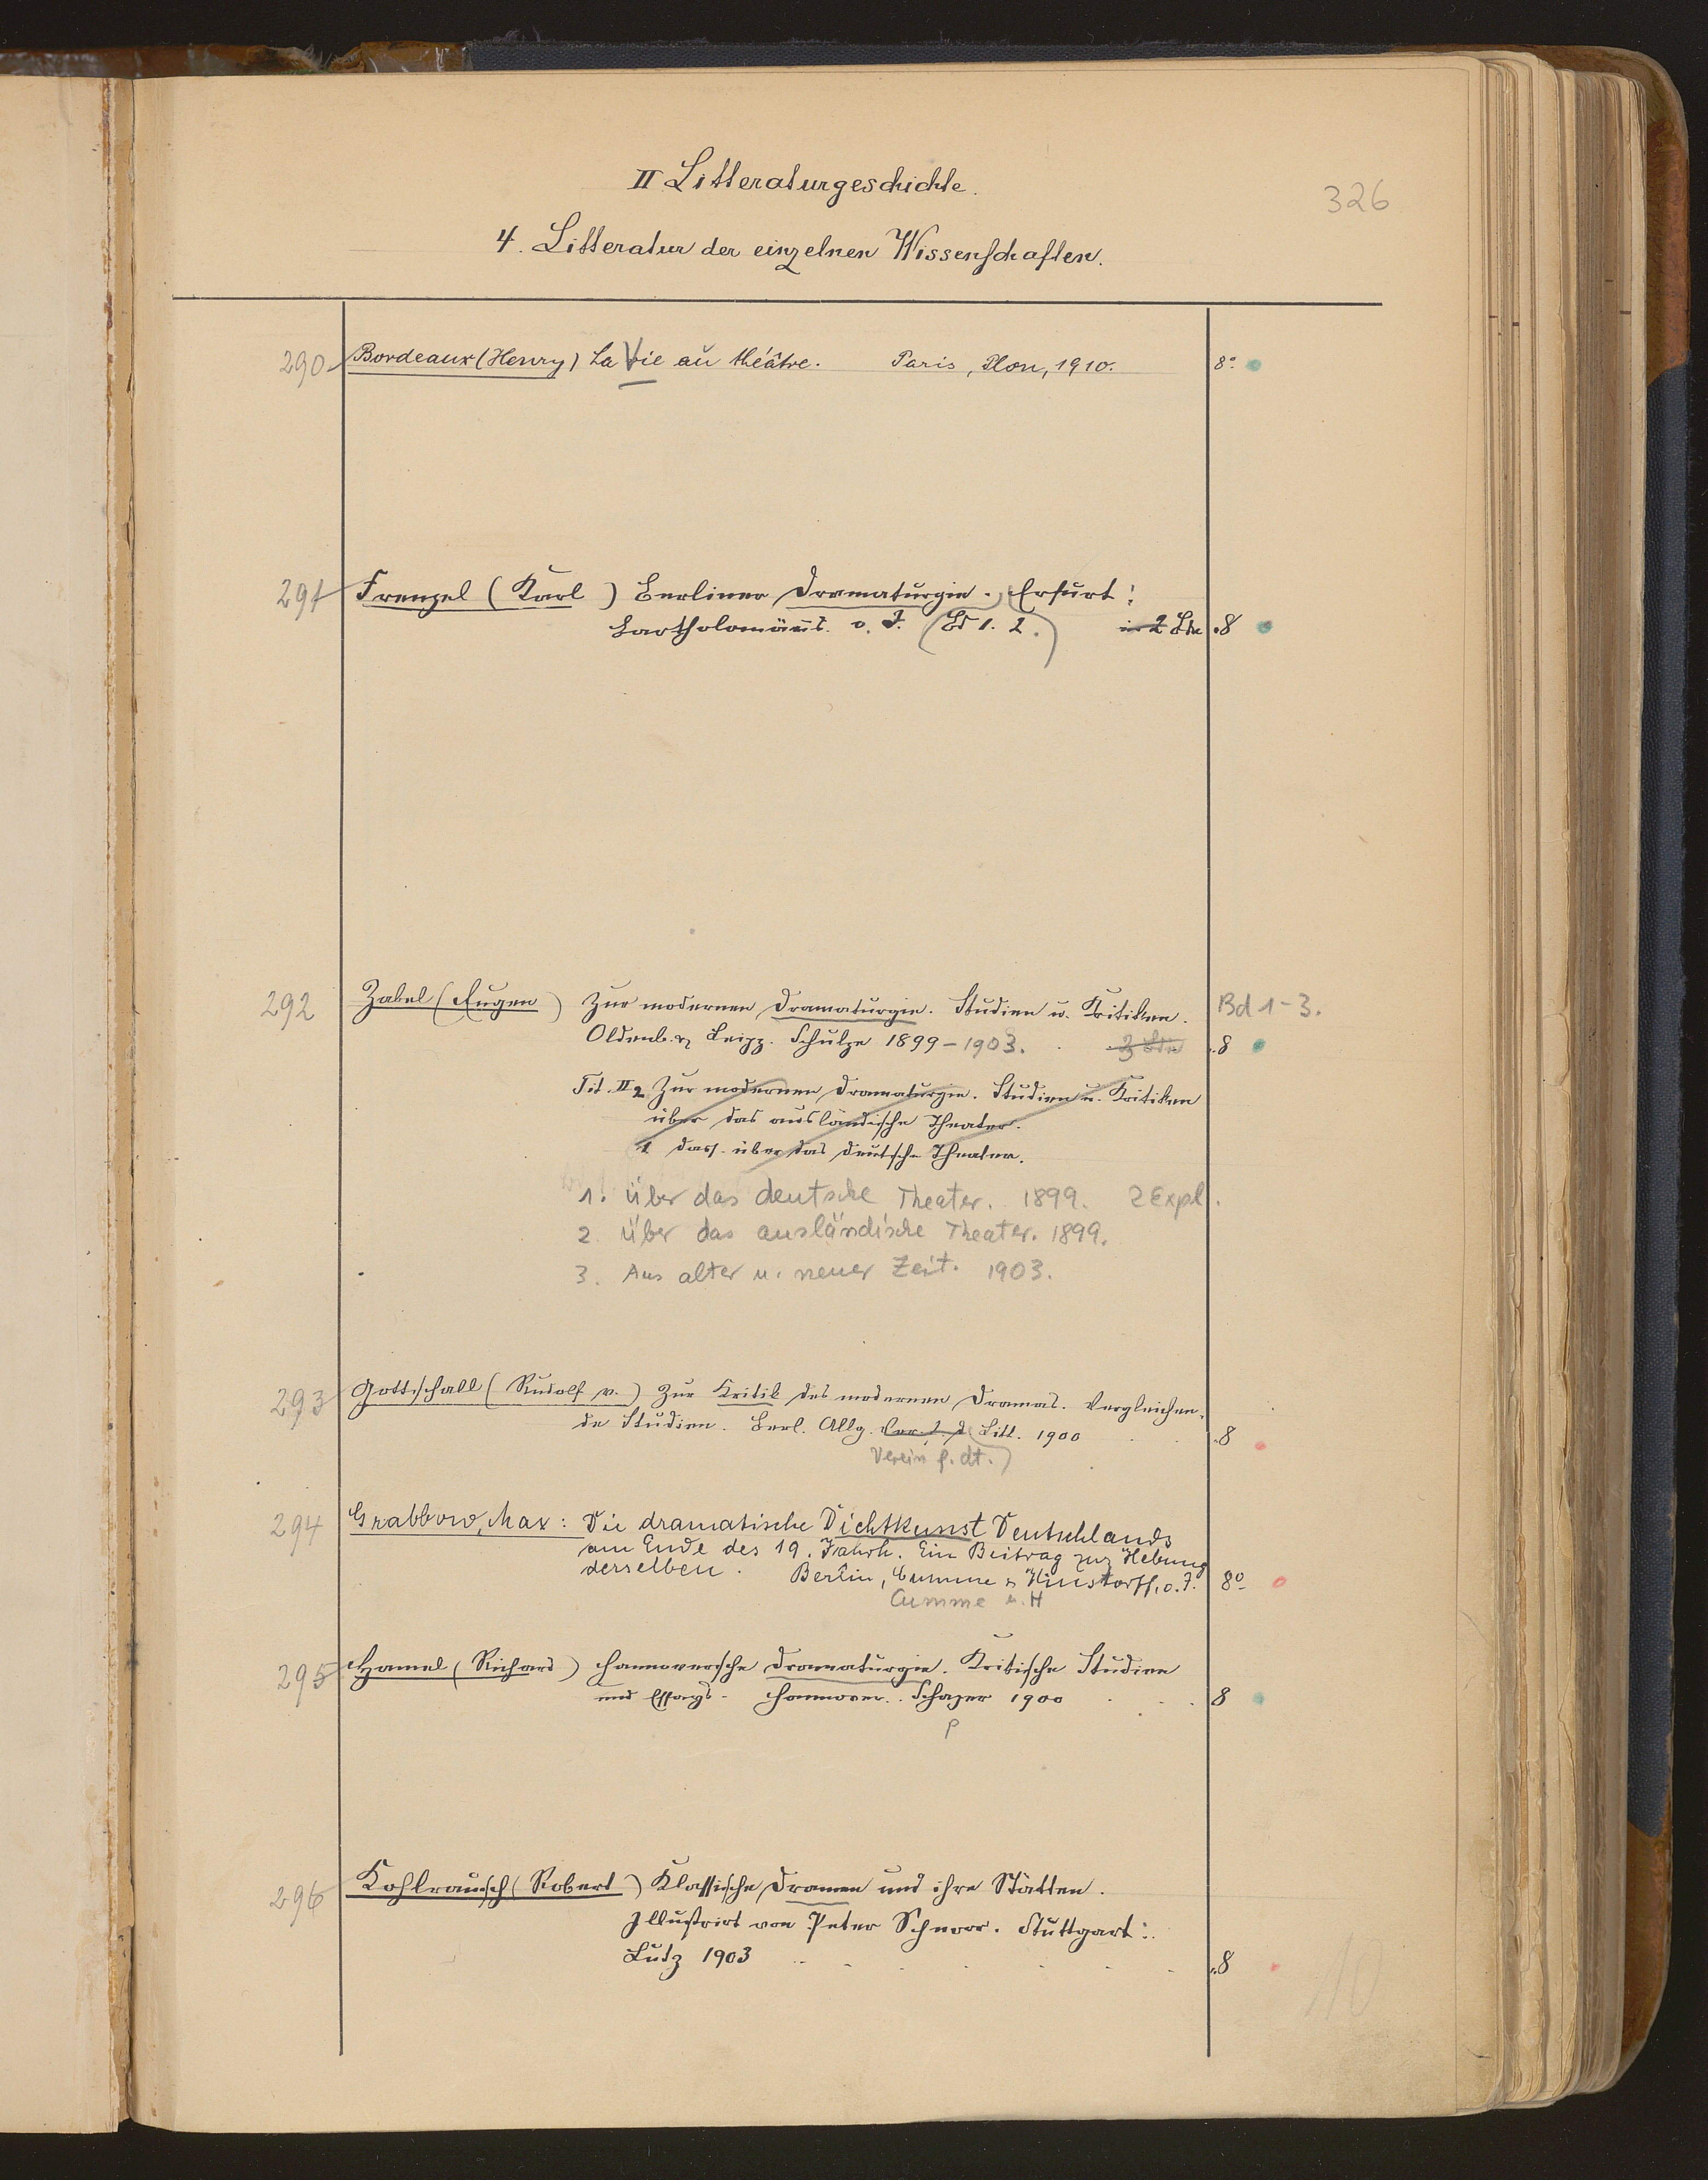 326
II Litteraturgeschichte.
4. Litteratur der einzelnen Wissenschaften.
290 Bordeaux (Henry) La Vie au théâtre. Paris, Plon, 1910. 8°
291 Frenzel (Karl) Berliner Dramaturgie. Erfurt:
Bartholomäus. o. J. (Bd 1. 2.) in 2 Bde 8
292 Zabel (Eugen) Zur modernen Dramaturgie. Studien u. Kritiken. Bd 1-3.
Oldenb. & Leipz. Schulze 1899-1903. 3 Bde 8
Tit. II 2 Zur modernen Dramaturgie. Studien u. Kritiken
über das ausländische Theater.
1 dass. über das deutsche Theater.
1. Über das deutsche Theater. 1899. 2 Expl.
2. Über das ausländische Theater. 1899.
3. Aus alter u. neuer Zeit. 1903.
293 Gottschall (Rudolf v.) Zur Kritik des modernen Dramas. Vergleichen-
de Studien. Berl. Allg. Ver. f. d Litt. 1900 8
Verein f. dt.)
294 Grabbow, Max: Die dramatische Dichtkunst Deutschlands
am Ende des 19. Jahrh. Ein Beitrag zur Hebung
derselben. Berlin, Cumme & Hinstorff, o. J. 8°
Cumme u. H
295 Hamel (Richard) Hannoversche Dramaturgie. Kritische Studien
und Essays. Hannover. Schaper 1900 8
p
296 Kohlrausch (Robert) Klassische Dramen und ihre Stätten.
Illustrirt von Peter Schnorr. Stuttgart:
Lutz 1903 8